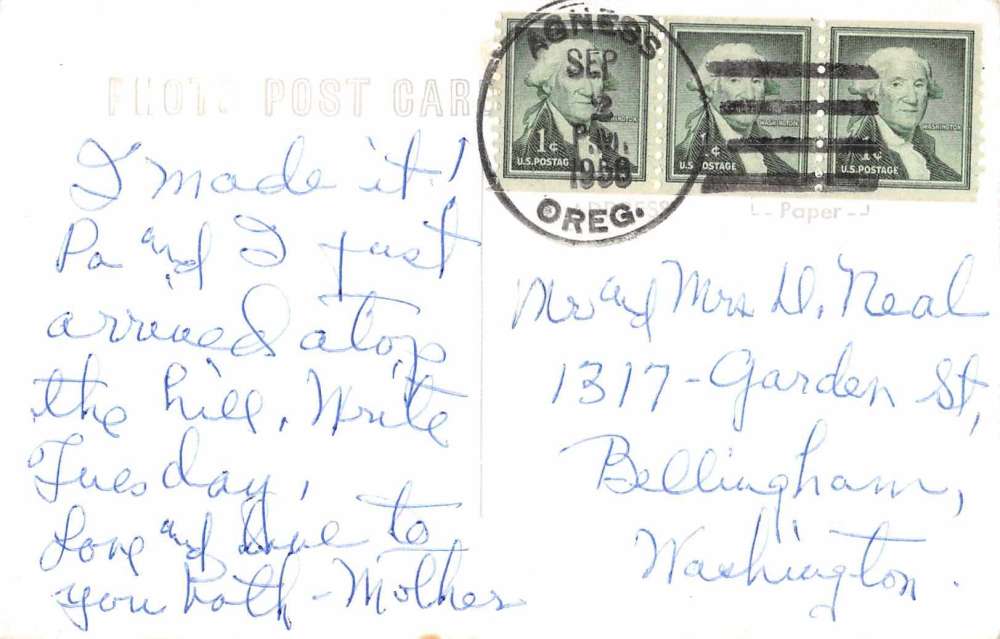 PHOTO POST CARD
AGNESS
SEP
2
P.M.
1958
OREG.
WASHINGTON
1¢
U.S. POSTAG
WASHINGTON
1¢
U.S. POSTAGE
WASHINGTON
1¢
U.S. POSTAGE
ADDRESS
Paper
I made it!
Pa and I just
arrived atop
the hill. Write
Tuesday,
Love and to
you both - Mother
Mr and Mrs D. Neal
1317 - Garden St,
Bellingham,
Washington.